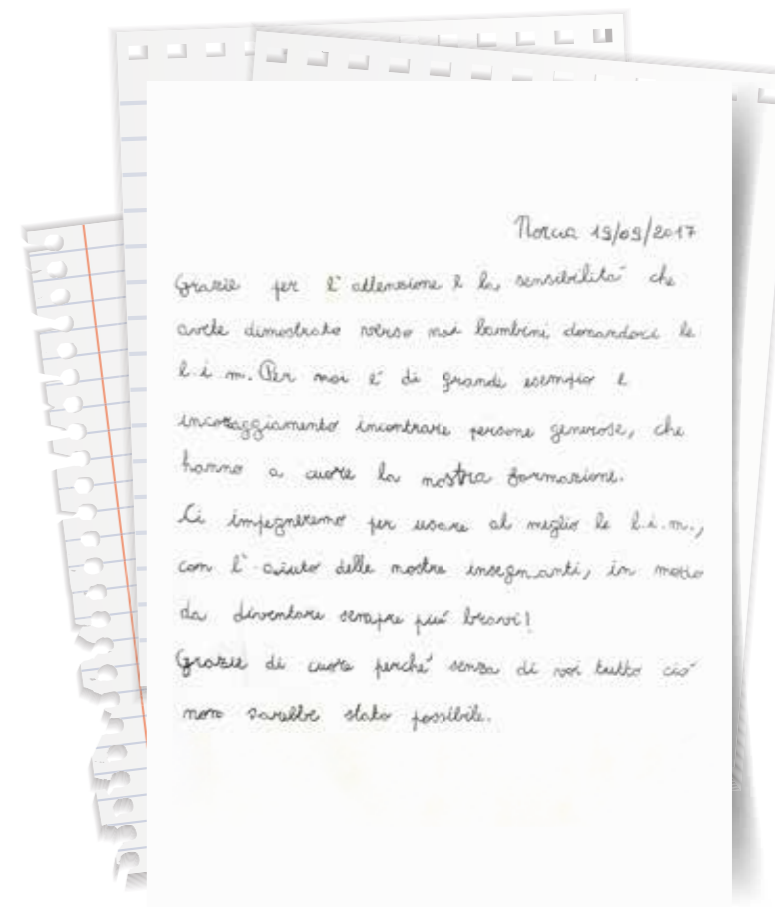 Norcia 19/09/2017
Grazie per l'attenzione e la sensibilità che
avete dimostrato verso noi bambini, donandoci le
l.i.m. Per noi è di grande esempio e
incoraggiamento incontrare persone generose, che
hanno a cuore la nostra formazione.
Ci impegneremo per usare al meglio le l.i.m.,
con l'aiuto delle nostre insegnanti, in modo
da diventare sempre più bravi!
Grazie di cuore perché senza di voi tutto ciò
non sarebbe stato possibile.